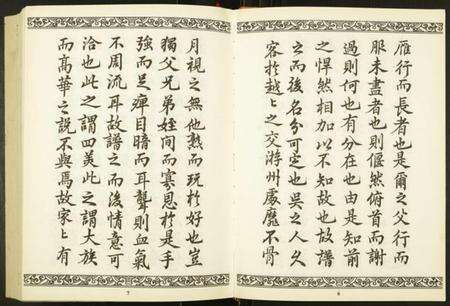 雁行而長者也是爾之父行而
服未盡者也則偃然俯首而謝
過則何也有分在也由是知前
之悍然相加以不知故也故譜
立而後名分可定也吳之人久
容於越上之交游州處靡不骨
6
月視之無他熟而玩於好也豈
獨父兄弟姪間而寡恩於是手
強而足痺目暗而耳聾則血氣
不周流耳故譜之而後情意可
洽也此之謂四美此之謂大族
而高華之説不與焉故家上有
7